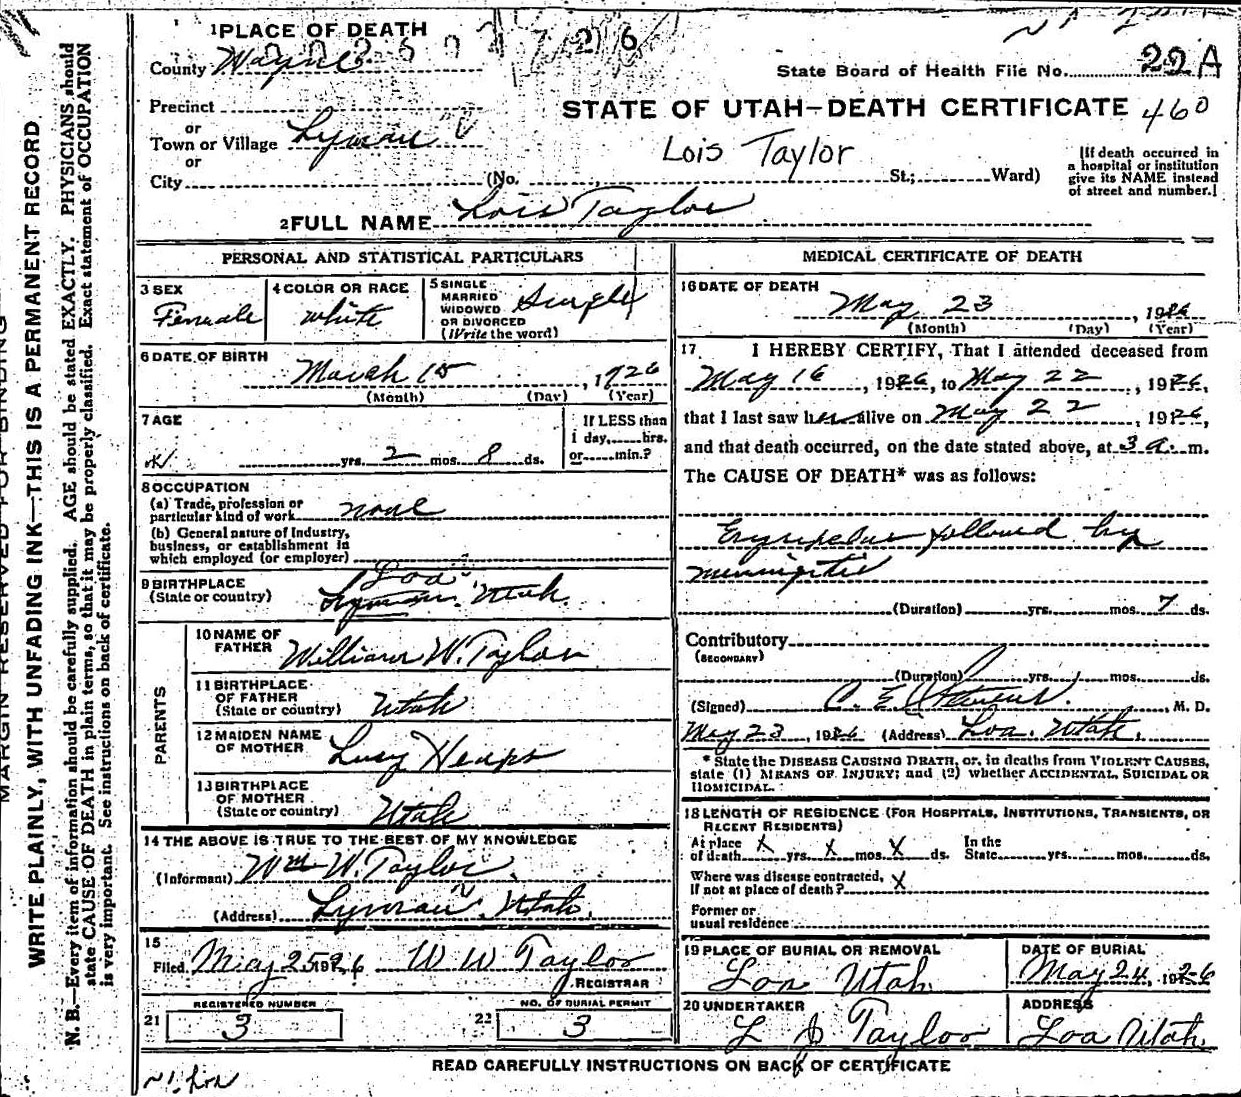 1 PLACE OF DEATH
County Wayne
State Board of Health File No. 22A
STATE OF UTAH—DEATH CERTIFICATE 460
Precinct
or
Town or Village Lyman
or
Lois Taylor
City (No. St.; Ward)
[If death occurred in
a hospital or institution
give its NAME instead
of street and number.]
2 FULL NAME Lois Taylor
PERSONAL AND STATISTICAL PARTICULARS
3 SEX
Female
4 COLOR OR RACE
white
5 SINGLE
MARRIED
WIDOWED
OR DIVORCED
(Write the word)
Single
6 DATE OF BIRTH
March 15, 1926
(Month) (Day) (Year)
7 AGE
yrs. 2 mos. 8 ds.
If LESS than
1 day, hrs.
or min.?
8 OCCUPATION
(a) Trade, profession or
particular kind of work none
(b) General nature of Industry,
business, or establishment in
which employed (or employer)
9 BIRTHPLACE
(State or country)
Loa
Lyman Utah.
PARENTS
10 NAME OF
FATHER William W. Taylor
11 BIRTHPLACE
OF FATHER
(State or country) Utah
12 MAIDEN NAME
OF MOTHER Lucy Heaps
13 BIRTHPLACE
OF MOTHER
(State or country) Utah
14 THE ABOVE IS TRUE TO THE BEST OF MY KNOWLEDGE
(Informant) Wm W. Taylor.
(Address) Lyman, Utah.
15
Filed May 25 1926 W W Taylor
REGISTRAR
REGISTERED NUMBER
21 3
NO. OF BURIAL PERMIT
22 3
MEDICAL CERTIFICATE OF DEATH
16 DATE OF DEATH
May 23, 1926
(Month) (Day) (Year)
17 I HEREBY CERTIFY, That I attended deceased from
May 16, 1926, to May 22, 1926,
that I last saw her alive on May 22, 1926,
and that death occurred, on the date stated above, at 3 a. m.
The CAUSE OF DEATH* was as follows:
Erysipelas followed by
meningitis
(Duration) yrs. mos. 7 ds.
Contributory
(SECONDARY)
(Duration) yrs. mos. ds.
(Signed) , M. D.
May 23, 1926 (Address) Loa. Utah.
* State the DISEASE CAUSING DEATH, or, in deaths from VIOLENT CAUSES,
state (1) MEANS OF INJURY; and (2) whether ACCIDENTAL, SUICIDAL OR
HOMICIDAL.
18 LENGTH OF RESIDENCE (FOR HOSPITALS, INSTITUTIONS, TRANSIENTS, OR
RECENT RESIDENTS)
At place
of death X yrs. X mos. X ds.
In the
State yrs. mos. ds.
Where was disease contracted,
if not at place of death? X
Former or
usual residence
19 PLACE OF BURIAL OR REMOVAL
Loa Utah.
DATE OF BURIAL
May 24, 1926
20 UNDERTAKER
L S Taylor
ADDRESS
Loa Utah.
READ CAREFULLY INSTRUCTIONS ON BACK OF CERTIFICATE
MARGIN RESERVED FOR BINDING
WRITE PLAINLY, WITH UNFADING INK—THIS IS A PERMANENT RECORD
N. B.—Every item of information should be carefully supplied. AGE should be stated EXACTLY. PHYSICIANS should
state CAUSE OF DEATH in plain terms, so that it may be properly classified. Exact statement of OCCUPATION
is very important. See instructions on back of certificate.